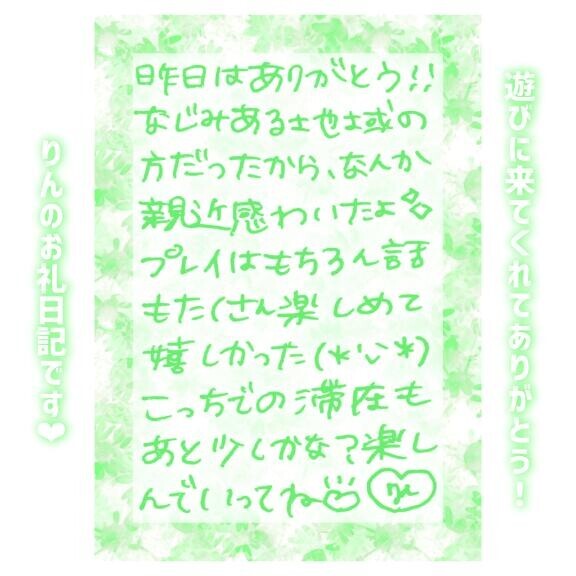 遊びに来てくれてありがとう！
昨日はありがとう!!
なじみある地域の
方だったから、なんか
親近感わいたよ
プレイはもちろん話
もたくさん楽しめて
嬉しかった(*'い'*)
こっちでの滞在も
あと少しかな？楽し
んでいってね
りんのお礼日記です❤